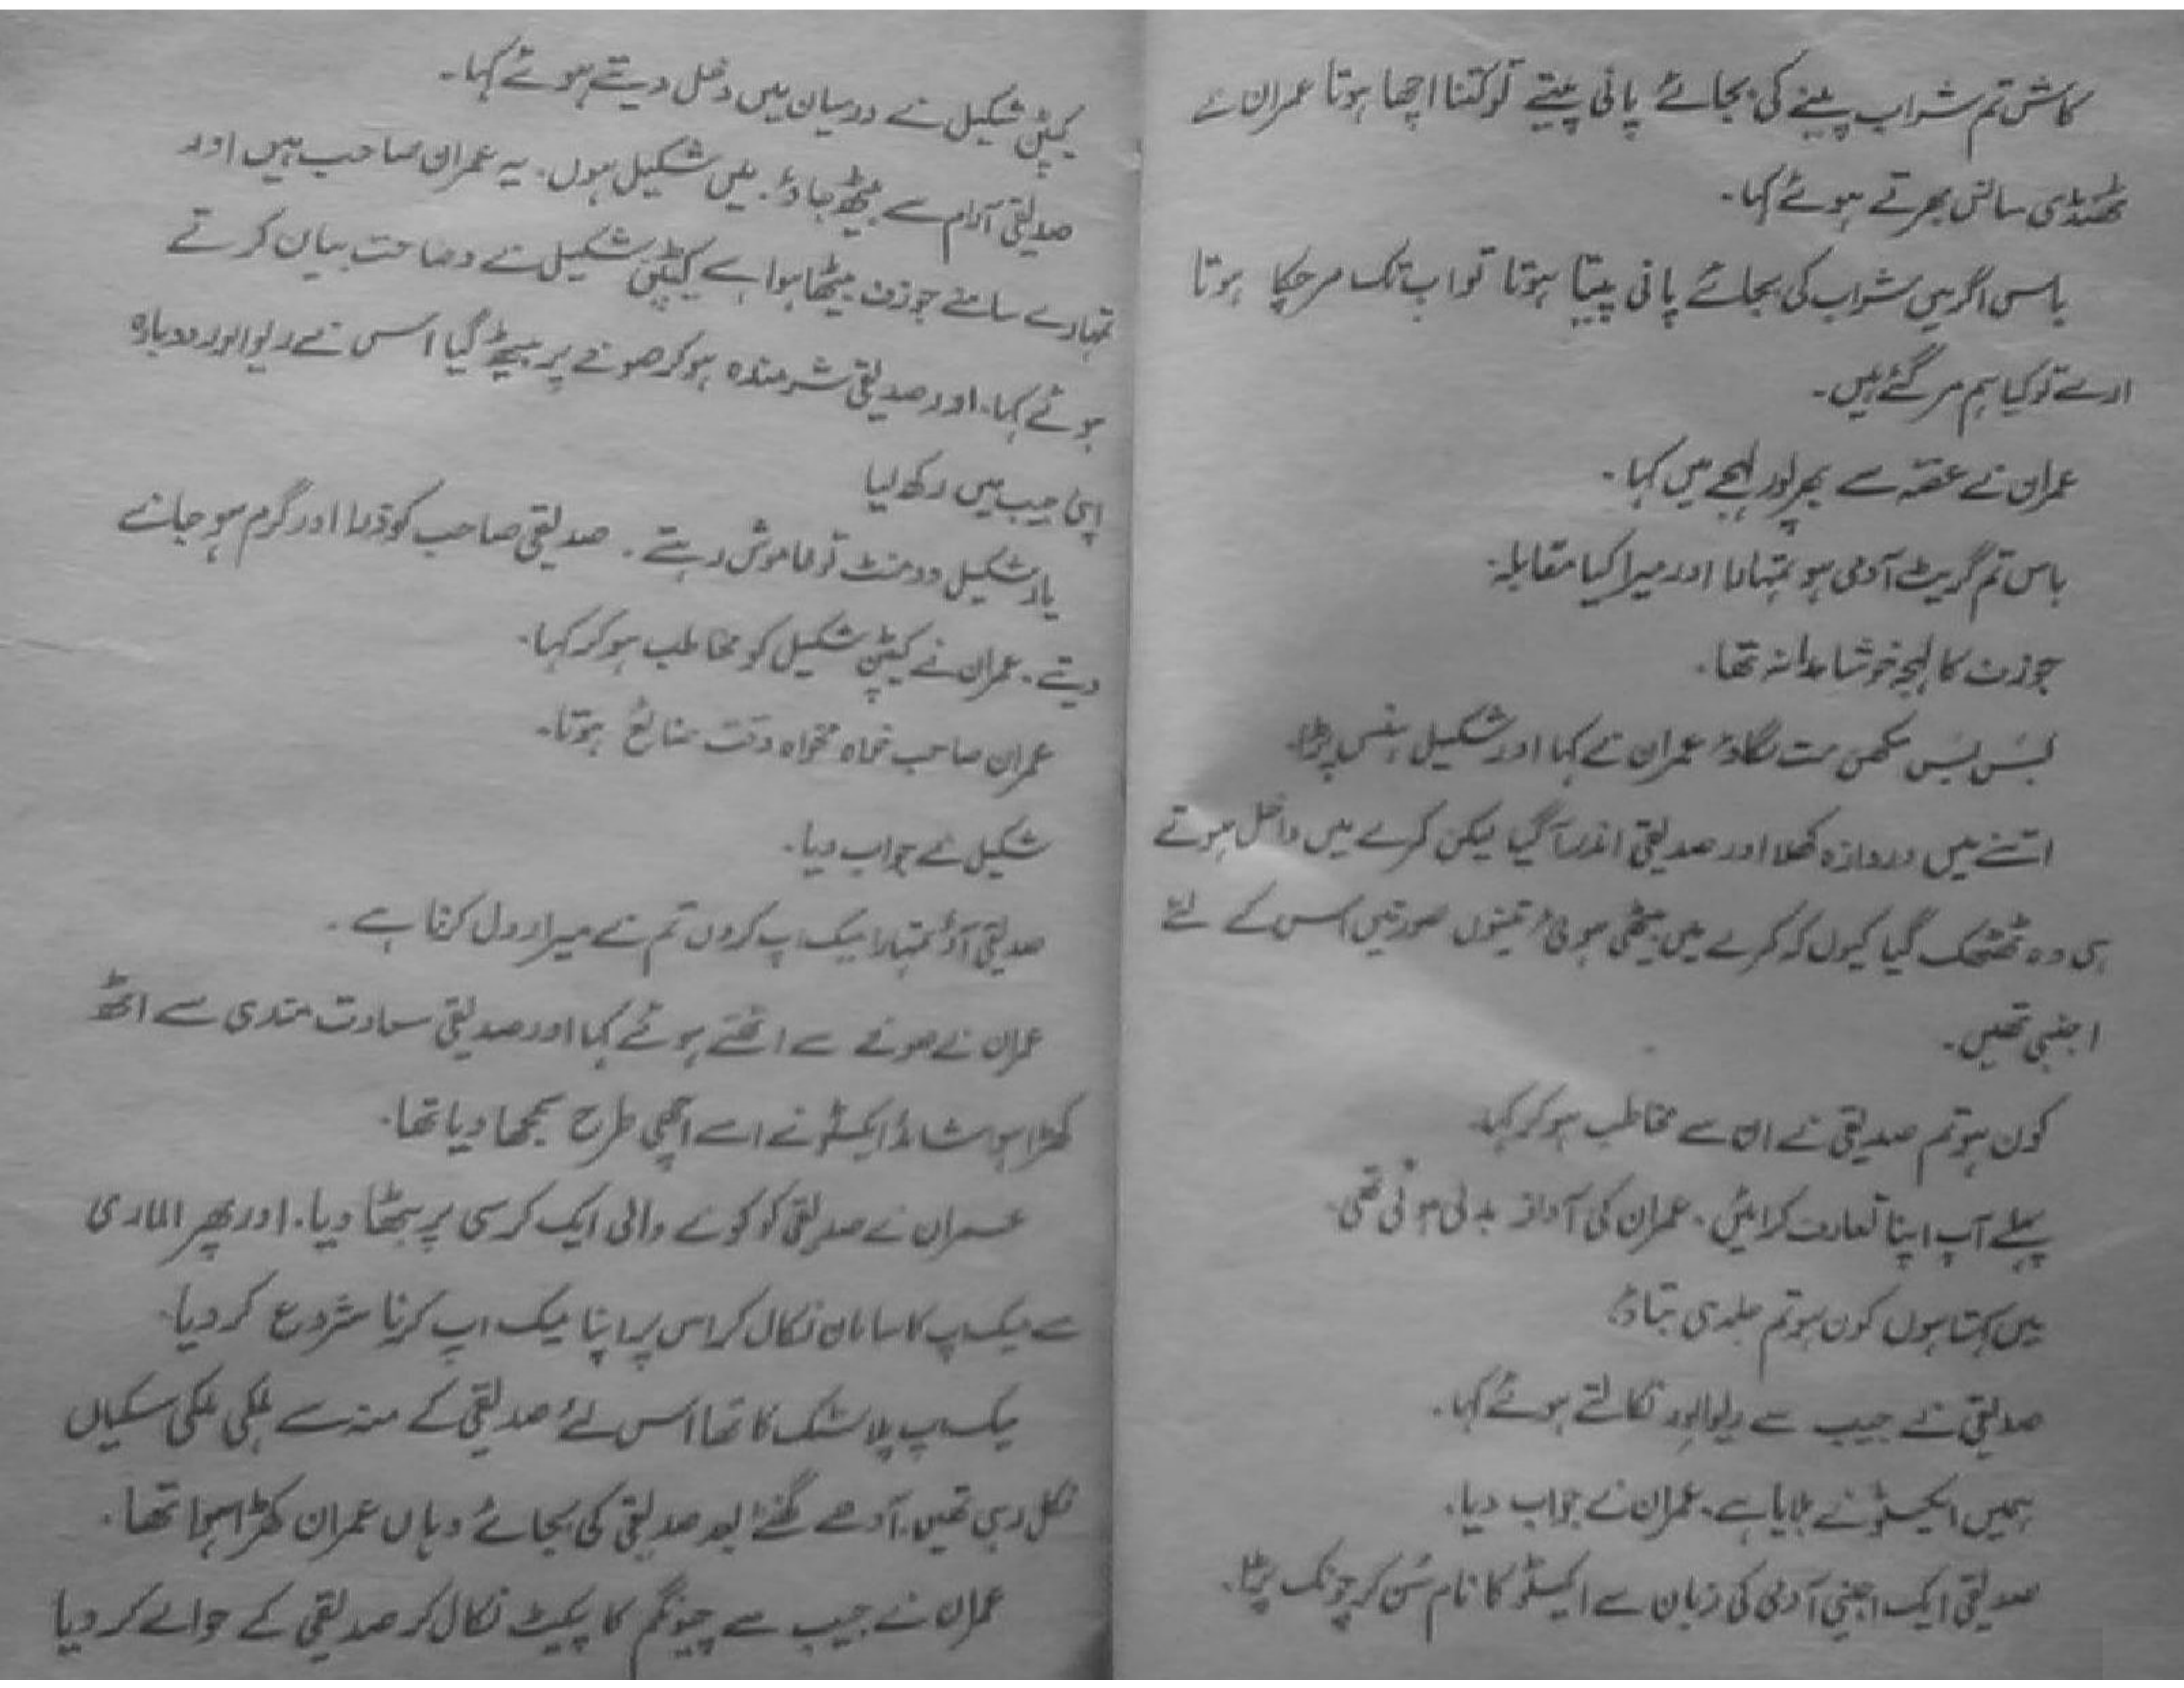 کاش تم شراب پینے کی بجائے پانی پیتے تو کتنا اچھا ہوتا عمران نے
ٹھنڈی سانس بھرتے ہوئے کہا۔
باس اگر میں شراب کی بجائے پانی پیتا ہوتا تو اب تک مر چکا ہوتا
ارے تو کیا ہم مر گئے ہیں۔
عمران نے غصہ سے بھرپور لہجے میں کہا۔
باس تم گریٹ آدمی ہو تمہارا اور میرا کیا مقابلہ۔
جوزف کا لہجہ خوشامدانہ تھا۔
بَس بَس مکھن مت لگاؤ عمران نے کہا اور شکیل ہنس پڑا۔
اتنے میں دروازہ کھلا اور صدیقی اندر آگیا لیکن کمرے میں داخل ہوتے
ہی وہ ٹھٹھک گیا کیوں کہ کمرے میں بیٹھی ہوئی تینوں صورتیں اس کے لئے
اجنبی تھیں۔
کون ہو تم صدیقی نے ان سے مخاطب ہو کر کہا۔
پہلے آپ اپنا تعارف کرائیں۔ عمران کی آواز بدلی ہوئی تھی۔
میں کہتا ہوں کون ہو تم جلدی بتاؤ۔
صدیقی نے جیب سے ریوالور نکالتے ہوئے کہا۔
ہمیں ایکسٹو نے بلایا ہے۔ عمران نے جواب دیا۔
صدیقی ایک اجنبی آدمی کی زبان سے ایکسٹو کا نام سُن کر چونک پڑا۔
کیپٹن شکیل نے درمیان میں دخل دیتے ہوئے کہا۔
صدیقی آرام سے بیٹھ جاؤ۔ میں شکیل ہوں۔ یہ عمران صاحب ہیں اور
تمہارے سامنے جوزف بیٹھا ہوا ہے کیپٹن شکیل نے وضاحت بیان کرتے
ہوئے کہا۔ اور صدیقی شرمندہ ہو کر صوفے پر بیٹھ گیا اس نے ریوالور دوبارہ
اپنی جیب میں رکھ لیا
یار شکیل دو منٹ تو خاموش رہتے۔ صدیقی صاحب کو ذرا اور گرم ہو جانے
دیتے۔ عمران نے کیپٹن شکیل کو مخاطب ہو کر کہا۔
عمران صاحب خواہ مخواہ وقت ضائع ہوتا۔
شکیل نے جواب دیا۔
صدیقی آؤ تمہارا میک اپ کروں تم نے میرا رول کرنا ہے۔
عمران نے صوفے سے اٹھتے ہوئے کہا اور صدیقی سعادت مندی سے اٹھ
کھڑا ہوا شائد ایکسٹو نے اسے اچھی طرح سمجھا دیا تھا۔
عمران نے صدیقی کو کونے والی ایک کرسی پر بٹھا دیا۔ اور پھر الماری
سے میک اپ کا سامان نکال کر اس پر اپنا میک اپ کرنا شروع کر دیا۔
میک اپ پلاسٹک کا تھا اس لئے صدیقی کے منہ سے ہلکی ہلکی سسکیاں
نکل رہی تھیں۔ آدھے گھنٹے بعد صدیقی کی بجائے وہاں عمران کھڑا ہوا تھا۔
عمران نے جیب سے چیونگم کا پیکٹ نکال کر صدیقی کے حوالے کر دیا